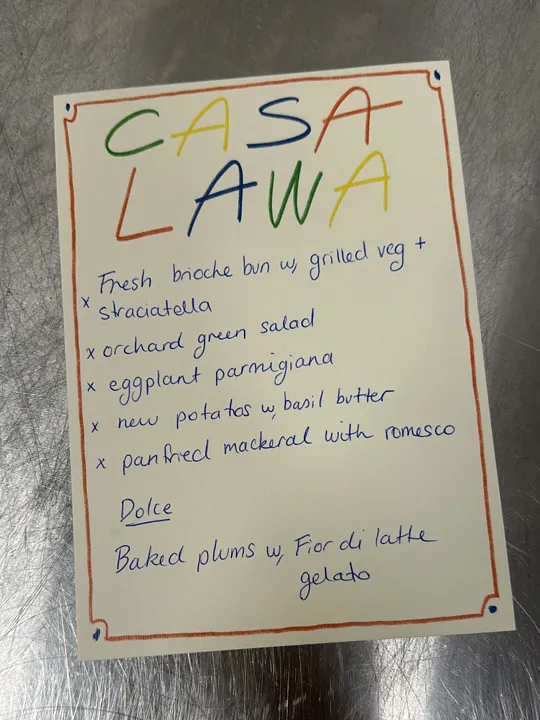 CASA
LAWA
Fresh brioche bun w, grilled veg +
x straciatella
x orchard green salad
x eggplant parmigiana
x new potatos w, basil butter
x panfried mackeral with romesco
Dolce
Baked plums w, Fior di latte
gelato